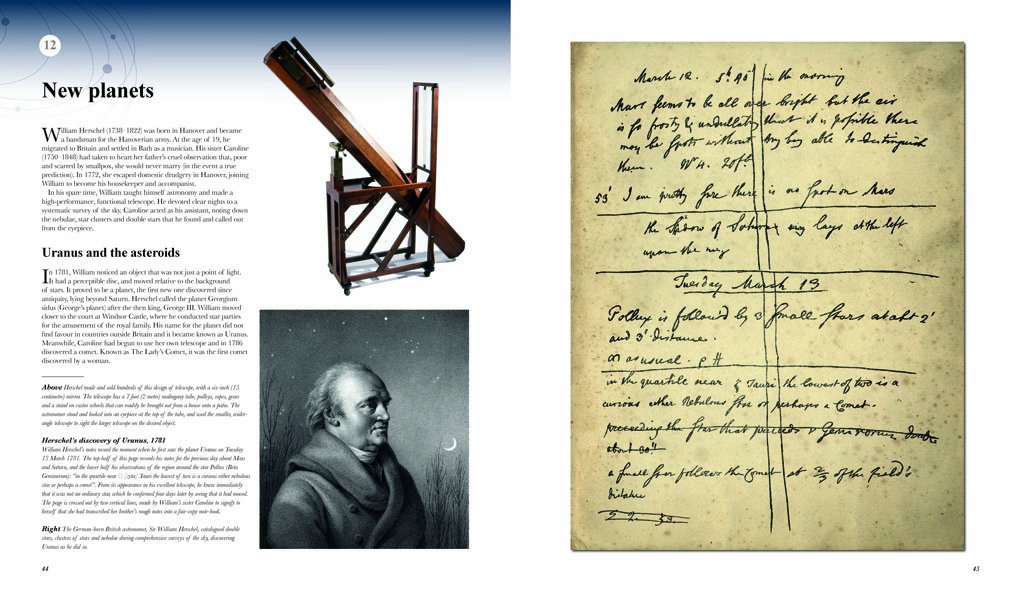 12
New planets
William Herschel (1738–1822) was born in Hanover and became
a bandsman for the Hanoverian army. At the age of 19, he
migrated to Britain and settled in Bath as a musician. His sister Caroline
(1750–1848) had taken to heart her father's cruel observation that, poor
and scarred by smallpox, she would never marry (in the event a true
prediction). In 1772, she escaped domestic drudgery in Hanover, joining
William to become his housekeeper and accompanist.
In his spare time, William taught himself astronomy and made a
high-performance, functional telescope. He devoted clear nights to a
systematic survey of the sky. Caroline acted as his assistant, noting down
the nebulae, star clusters and double stars that he found and called out
from the eyepiece.
Uranus and the asteroids
In 1781, William noticed an object that was not just a point of light.
It had a perceptible disc, and moved relative to the background
of stars. It proved to be a planet, the first new one discovered since
antiquity, lying beyond Saturn. Herschel called the planet Georgium
sidus (George's planet) after the then king, George III. William moved
closer to the court at Windsor Castle, where he conducted star parties
for the amusement of the royal family. His name for the planet did not
find favour in countries outside Britain and it became known as Uranus.
Meanwhile, Caroline had begun to use her own telescope and in 1786
discovered a comet. Known as The Lady's Comet, it was the first comet
discovered by a woman.
Above Herschel made and sold hundreds of this design of telescope, with a six-inch (15
centimetre) mirror. The telescope has a 7 foot (2 metre) mahogany tube, pulleys, ropes, gears
and a stand on castor wheels that can readily be brought out from a house onto a patio. The
astronomer stood and looked into an eyepiece at the top of the tube, and used the smaller, wider-
angle telescope to sight the larger telescope on the desired object.
Herschel's discovery of Uranus, 1781
William Herschel's notes record the moment when he first saw the planet Uranus on Tuesday
13 March 1781. The top half of this page records his notes for the previous day about Mars
and Saturn, and the lower half his observations of the region around the star Pollux (Beta
Geminorum): "in the quartile near [zeta] Tauri the lowest of two is a curious either nebulous
star or perhaps a comet". From its appearance in his excellent telescope, he knew immediately
that it was not an ordinary star, which he confirmed four days later by seeing that it had moved.
The page is crossed out by two vertical lines, made by William's sister Caroline to signify to
herself that she had transcribed her brother's rough notes into a fair-copy note-book.
Right The German-born British astronomer, Sir William Herschel, catalogued double
stars, clusters of stars and nebulae during comprehensive surveys of the sky, discovering
Uranus as he did so.
44
March 12. in the morning
Mars seems to be all over bright but the air
is so frosty & undulating that it is possible there
may be spots without my being able to distinguish
them. 20ft
53' I am pretty sure there is no spot on Mars
the Shadow of Saturn lays at the left
upon the ring
Tuesday March 13
Pollux is followed by 3 small stars at abt 2'
and 3' distance.
as usual. p #
in the quartile near ζ Tauri the lowest of two is a
curious either Nebulous star or perhaps a Comet.
preceeding the star that precedes Geminorum double
about 30"
a small star follows the Comet at 2/3 of the field's
distance
45